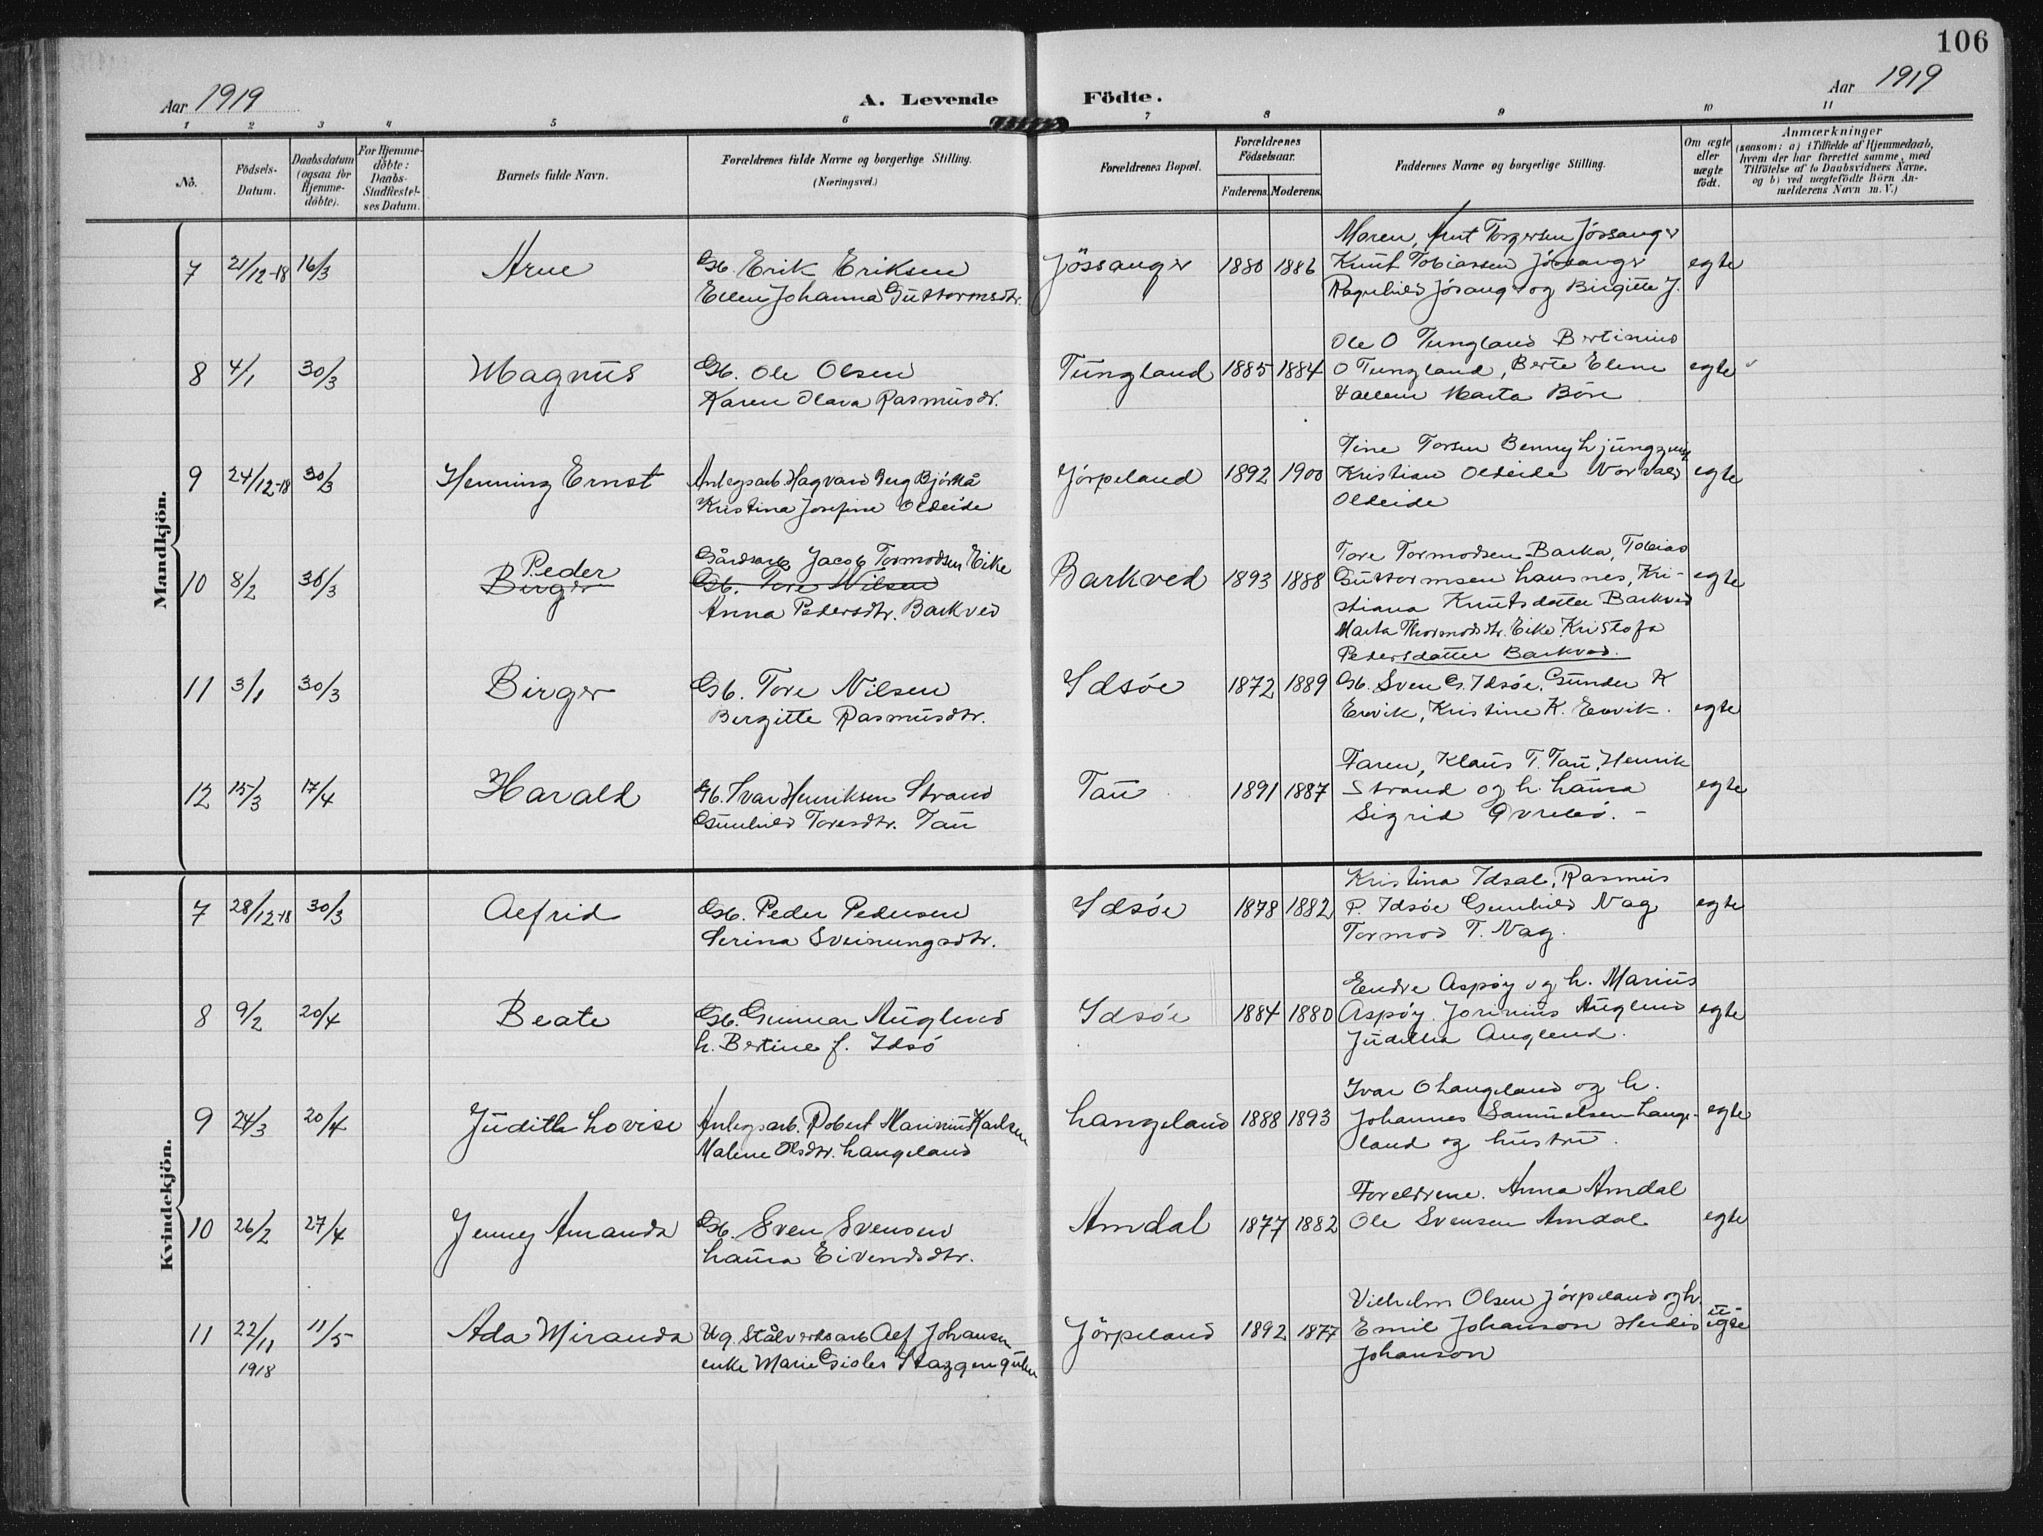 106
Aar 1919
A. Levende Födte.
Aar 1919
1 2 3 4 5 6 7 8 9 10 11
No.
Födsels-Datum.
Daabsdatum (ogsaa for Hjemme-döbte).
For Hjemme-döbte: Daabs-Stadfæstel-ses Datum.
Barnets fulde Navn.
Forældrenes fulde Navne og borgerlige Stilling. (Næringsvei.)
Forældrenes Bopæl.
Forældrenes Födselsaar.
Faderens. Moderens.
Faddernes Navne og borgerlige Stilling.
Om ægte eller uægte födt.
Anmærkninger
(saasom: a) i Tilfælde af Hjemmedaab,
hvem der har forrettet samme, med
Tilföielse af to Daabsvidners Navne,
og b) ved uægtefödte Börn An-
melderens Navn m. V.)
Mandkjön.
7 21/12-18 16/3 Arne Gb. Erik Eriksen
Ellen Johanna Guttormsdtr.
Jössanger 1880 1886
Moren, Knut Torgersen Jössanger
Knut Tobiassen Jössanger
Ragnhild Jösanger og Birgitte J.
egte
8 4/1 30/3 Magnus Gb. Ole Olsen
Karen Olava Rasmusdr.
Tungland 1885 1884
Ole O Tungland Bertinius
O Tungland, Berte Elene
Vallem Marta Böre
egte
9 24/12-18 30/3 Henning Ernst Anlegsarb. Hagvard Berg Björkå
Kristina Josefine Oldeide
Jörpeland 1892 1900
Tine Torsen Benny Ljungqvist
Kristian Oldeide Norvald
Oldeide
egte
10 8/2 30/3 Peder
Birger
Gårdsarb Jacob Tormodsen Eike
Gb. Tore Nilsen
Anna Pedersdtr. Barkved
Barkved 1893 1888
Tore Tormodsen Barka, Tobias
Guttormsen Lausnes, Kri-
stiana Knutsdatter Barkved
Marta Thormodsdtr. Eike Kristofa
Pedersdatter Barkved.
egte
11 3/1 30/3 Birger Gb. Tore Nilsen
Birgitte Rasmusdtr.
Idsöe 1872 1889
Gb. Sven G. Idsöe, Gunder K
Ervik, Kristine K. Ervik.
egte
12 15/3 17/4 Harald Gb. Ivar Henriksen Strand
Gunhild Toresdtr. Tau
Tau 1891 1887
Faren, Klaus T. Tau, Henrik
Strand og h. Laura
Sigrid
egte
Kvindekjön.
7 28/12-18 30/3 Alfrid Gb. Peder Pedersen
Serina Sveinungsdtr.
Idsöe 1878 1882
Kristina Idsal, Rasmus
P. Idsöe Gunhild Nag
Tormod T. Nag.
egte
8 9/2 20/4 Beate Gb. Gunnar Auglend
h. Bertine f. Idsö
Idsöe 1884 1880
Endre Aspöy og h. Marius
Aspöy. Jorinius Auglend
Juditha Auglend.
egte
9 24/3 20/4 Judith Lovise Anlegsarb. Robert Marinius Karlsen
Malene Olsdtr. Langeland
Langeland 1888 1893
Ivar O Langeland og h.
Johannes Samuelsen Lange-
land og hustru.
egte
10 26/2 27/4 Jenny Amanda Gb. Sven Svensen
Laura Eivendsdtr.
Amdal 1877 1882
Foreldrene. Anna Amdal
Ole Svensen Amdal
egte
11 22/11 1918 11/5 Ada Miranda Ug. Stålverksarb Alf Johansen
enke Marie
Jörpeland 1892 1877
Vilhelm Olsen Jörpeland og h.
Emil Johanson Heidis
Johanson
u-
egte